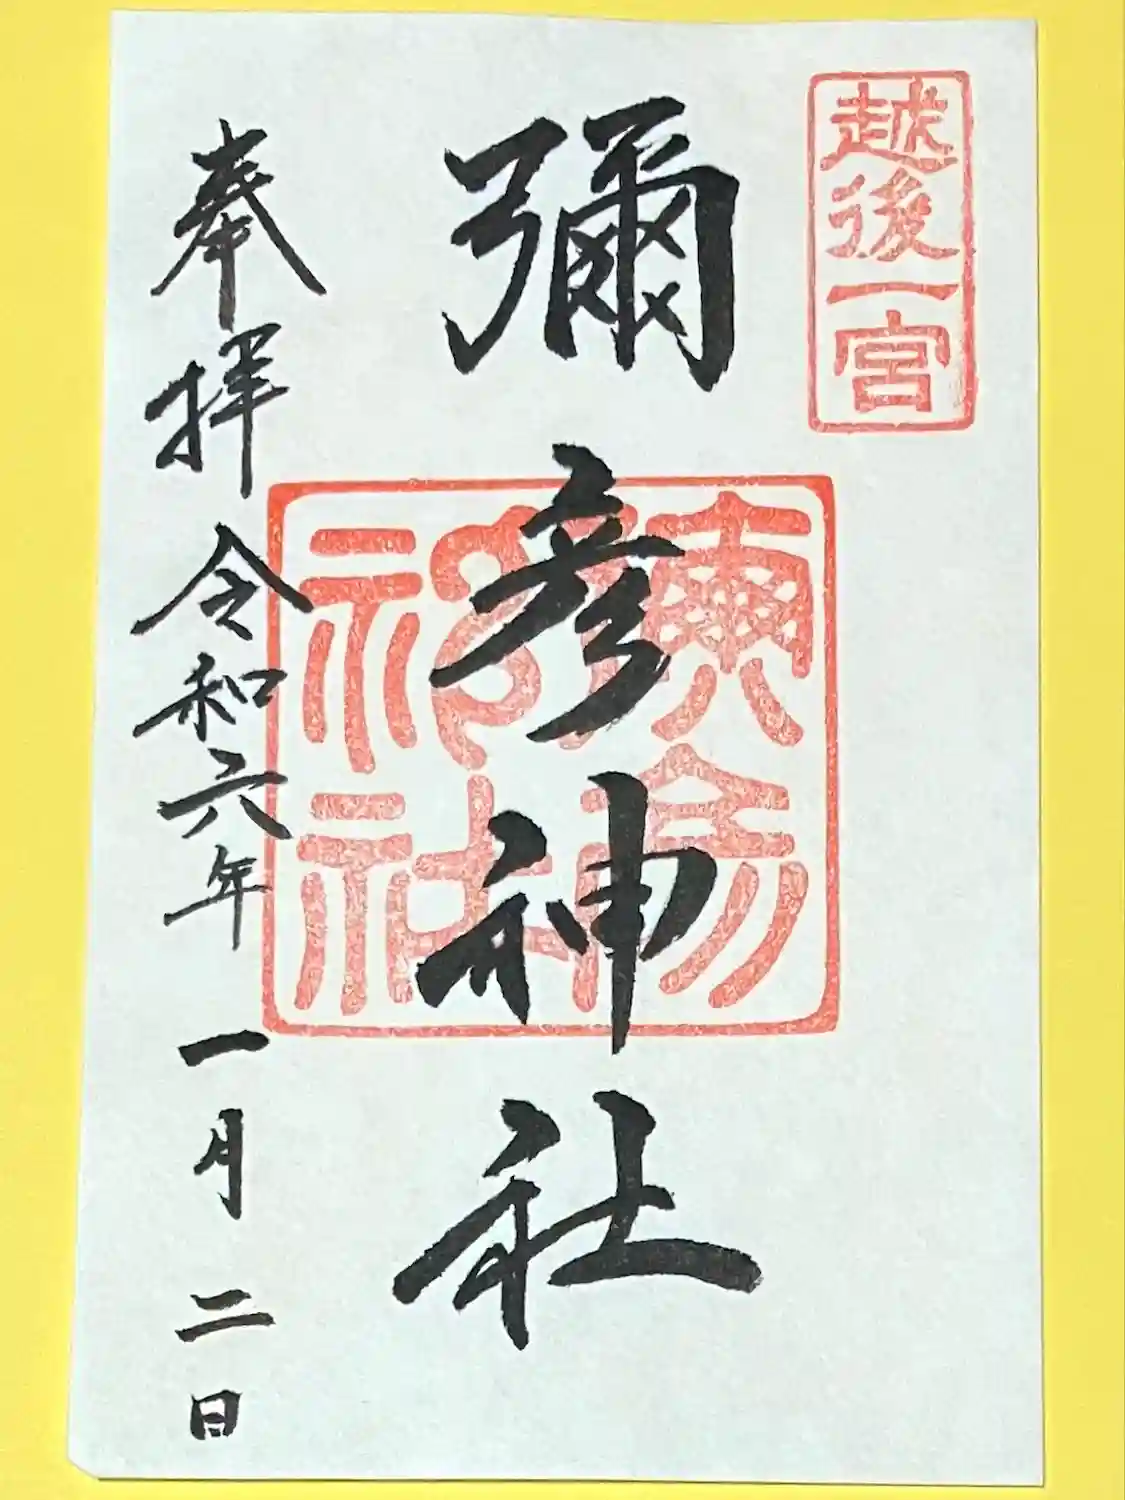 越後一宮
彌彦神社
奉拝 令和六年 一月 二日